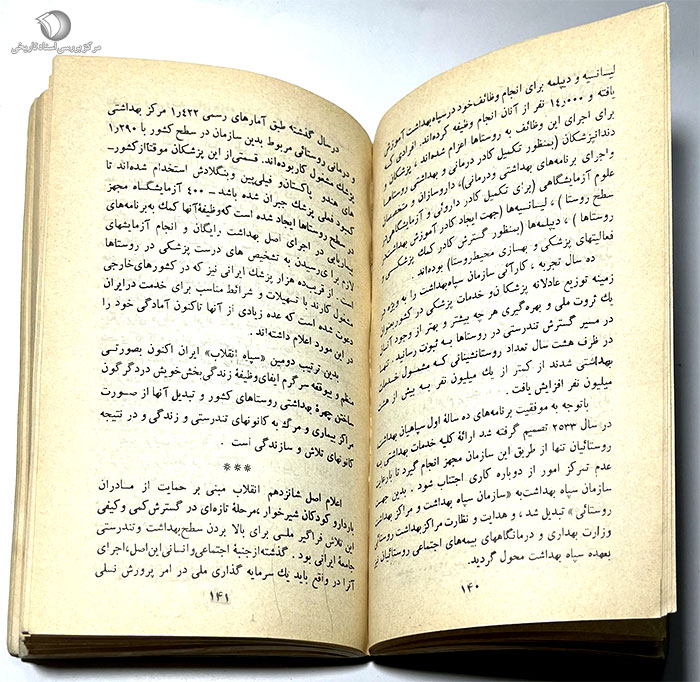 مرکز بررسی اسناد تاریخی
لیسانسیه و دیپلمه برای انجام وظائف خود در سپاه بهداشت آموزش
یافته و ۱۴٫۰۰۰ نفر از آنان انجام وظیفه کرده‌اند. افرادی که
برای اجرای این وظائف به روستاها اعزام شده‌اند، پزشکان و
دندانپزشکان (بمنظور تکمیل کادر درمانی و بهداشتی روستاها
واجرای برنامه‌های بهداشتی ودرمانی)، داروسازان و متخصصان
علوم آزمایشگاهی (برای تکمیل کادر داروئی و آزمایشگاهی در
سطح روستا)، لیسانسیه‌ها (جهت ایجاد کادر آموزش بهداشت
روستاها)، دیپلمه‌ها (بمنظور گسترش کادر کمك پزشکی و
فعالیتهای پزشکی و بهسازی محیط روستا) بوده‌اند.
ده سال تجربه، کارآئی سازمان سپاه بهداشت را به ویژه در
زمینه توزیع عادلانه پزشکان و خدمات پزشکی در کشور بصورت
یك ثروت ملی و بهره‌گیری هر چه بیشتر و بهتر از وجود آنان
در مسیر گسترش تندرستی در روستاها به ثبوت رسانید.
در ظرف هشت سال تعداد روستانشینانی که مشمول خدمات
بهداشتی شدند از کمتر از یك میلیون نفر به بیش از هشت
میلیون نفر افزایش یافت.
باتوجه به موفقیت برنامه‌های ده سالۀ اول سپاهیان بهداشت
در سال ۲۵۳۳ تصمیم گرفته شد ارائۀ کلیه خدمات بهداشتی به
روستائیان تنها از طریق این سازمان مجهز انجام گیرد تا باردیگر
عدم تمرکز امور از دوباره کاری اجتناب شود. بدین جهت
سازمان سپاه بهداشت به «سازمان سپاه بهداشت و مراکز بهداشت
روستائی» تبدیل شد، و هدایت و نظارت مراکز بهداشت روستائی
وزارت بهداری و درمانگاههای بیمه‌های اجتماعی روستائیان نیز
بعهده سپاه بهداشت محول گردید.
۱۴۰
درسال گذشته طبق آمارهای رسمی ۱٫۴۲۲ مرکز بهداشتی
و درمانی روستائی مربوط بدین سازمان در سطح کشور با ۱٫۲۹۰
پزشك مشغول کار بوده‌اند. قسمتی از این پزشکان موقتاً از کشور-
های هند و پاکستان و فیلی‌پین و بنگلادش استخدام شده‌اند تا
کمبود فعلی پزشك جبران شده باشد - ۴۰۰ آزمایشگاه مجهز
در سطح روستاها ایجاد شده است که وظیفۀ آنها کمك به برنامه‌های
بیماریابی در اجرای اصل بهداشت رایگان و انجام آزمایشهای
لازم برای رسیدن به تشخیص های درست پزشکی در روستاها
است. از قریب ده هزار پزشك ایرانی نیز که در کشورهای خارجی
مشغول کارند با تسهیلات و شرائط مناسب برای خدمت در ایران
دعوت شده است که عده زیادی از آنها تاکنون آمادگی خود را
در این مورد اعلام داشته‌اند.
بدین ترتیب دومین «سپاه انقلاب» ایران اکنون بصورتی
منظم و بیوقفه سرگرم ایفای وظیفۀ زندگی‌بخش خویش در دگرگون
ساختن چهرۀ بهداشتی روستاهای کشور و تبدیل آنها از صورت
مراکز بیماری و مرگ به کانونهای تندرستی و زندگی و در نتیجه
کانونهای تلاش و سازندگی است.
***
اعلام اصل شانزدهم انقلاب مبنی بر حمایت از مادران
باردار و کودکان شیرخوار، مرحلۀ تازه‌ای در گسترش کمی و کیفی
این تلاش فراگیر ملی برای بالا بردن سطح بهداشت وتندرستی
جامعۀ ایرانی بود. گذشته از جنبۀ اجتماعی وانسانی این اصل، اجرای
آنرا در واقع باید یك سرمایه گذاری ملی در امر پرورش نسلی
۱۴۱